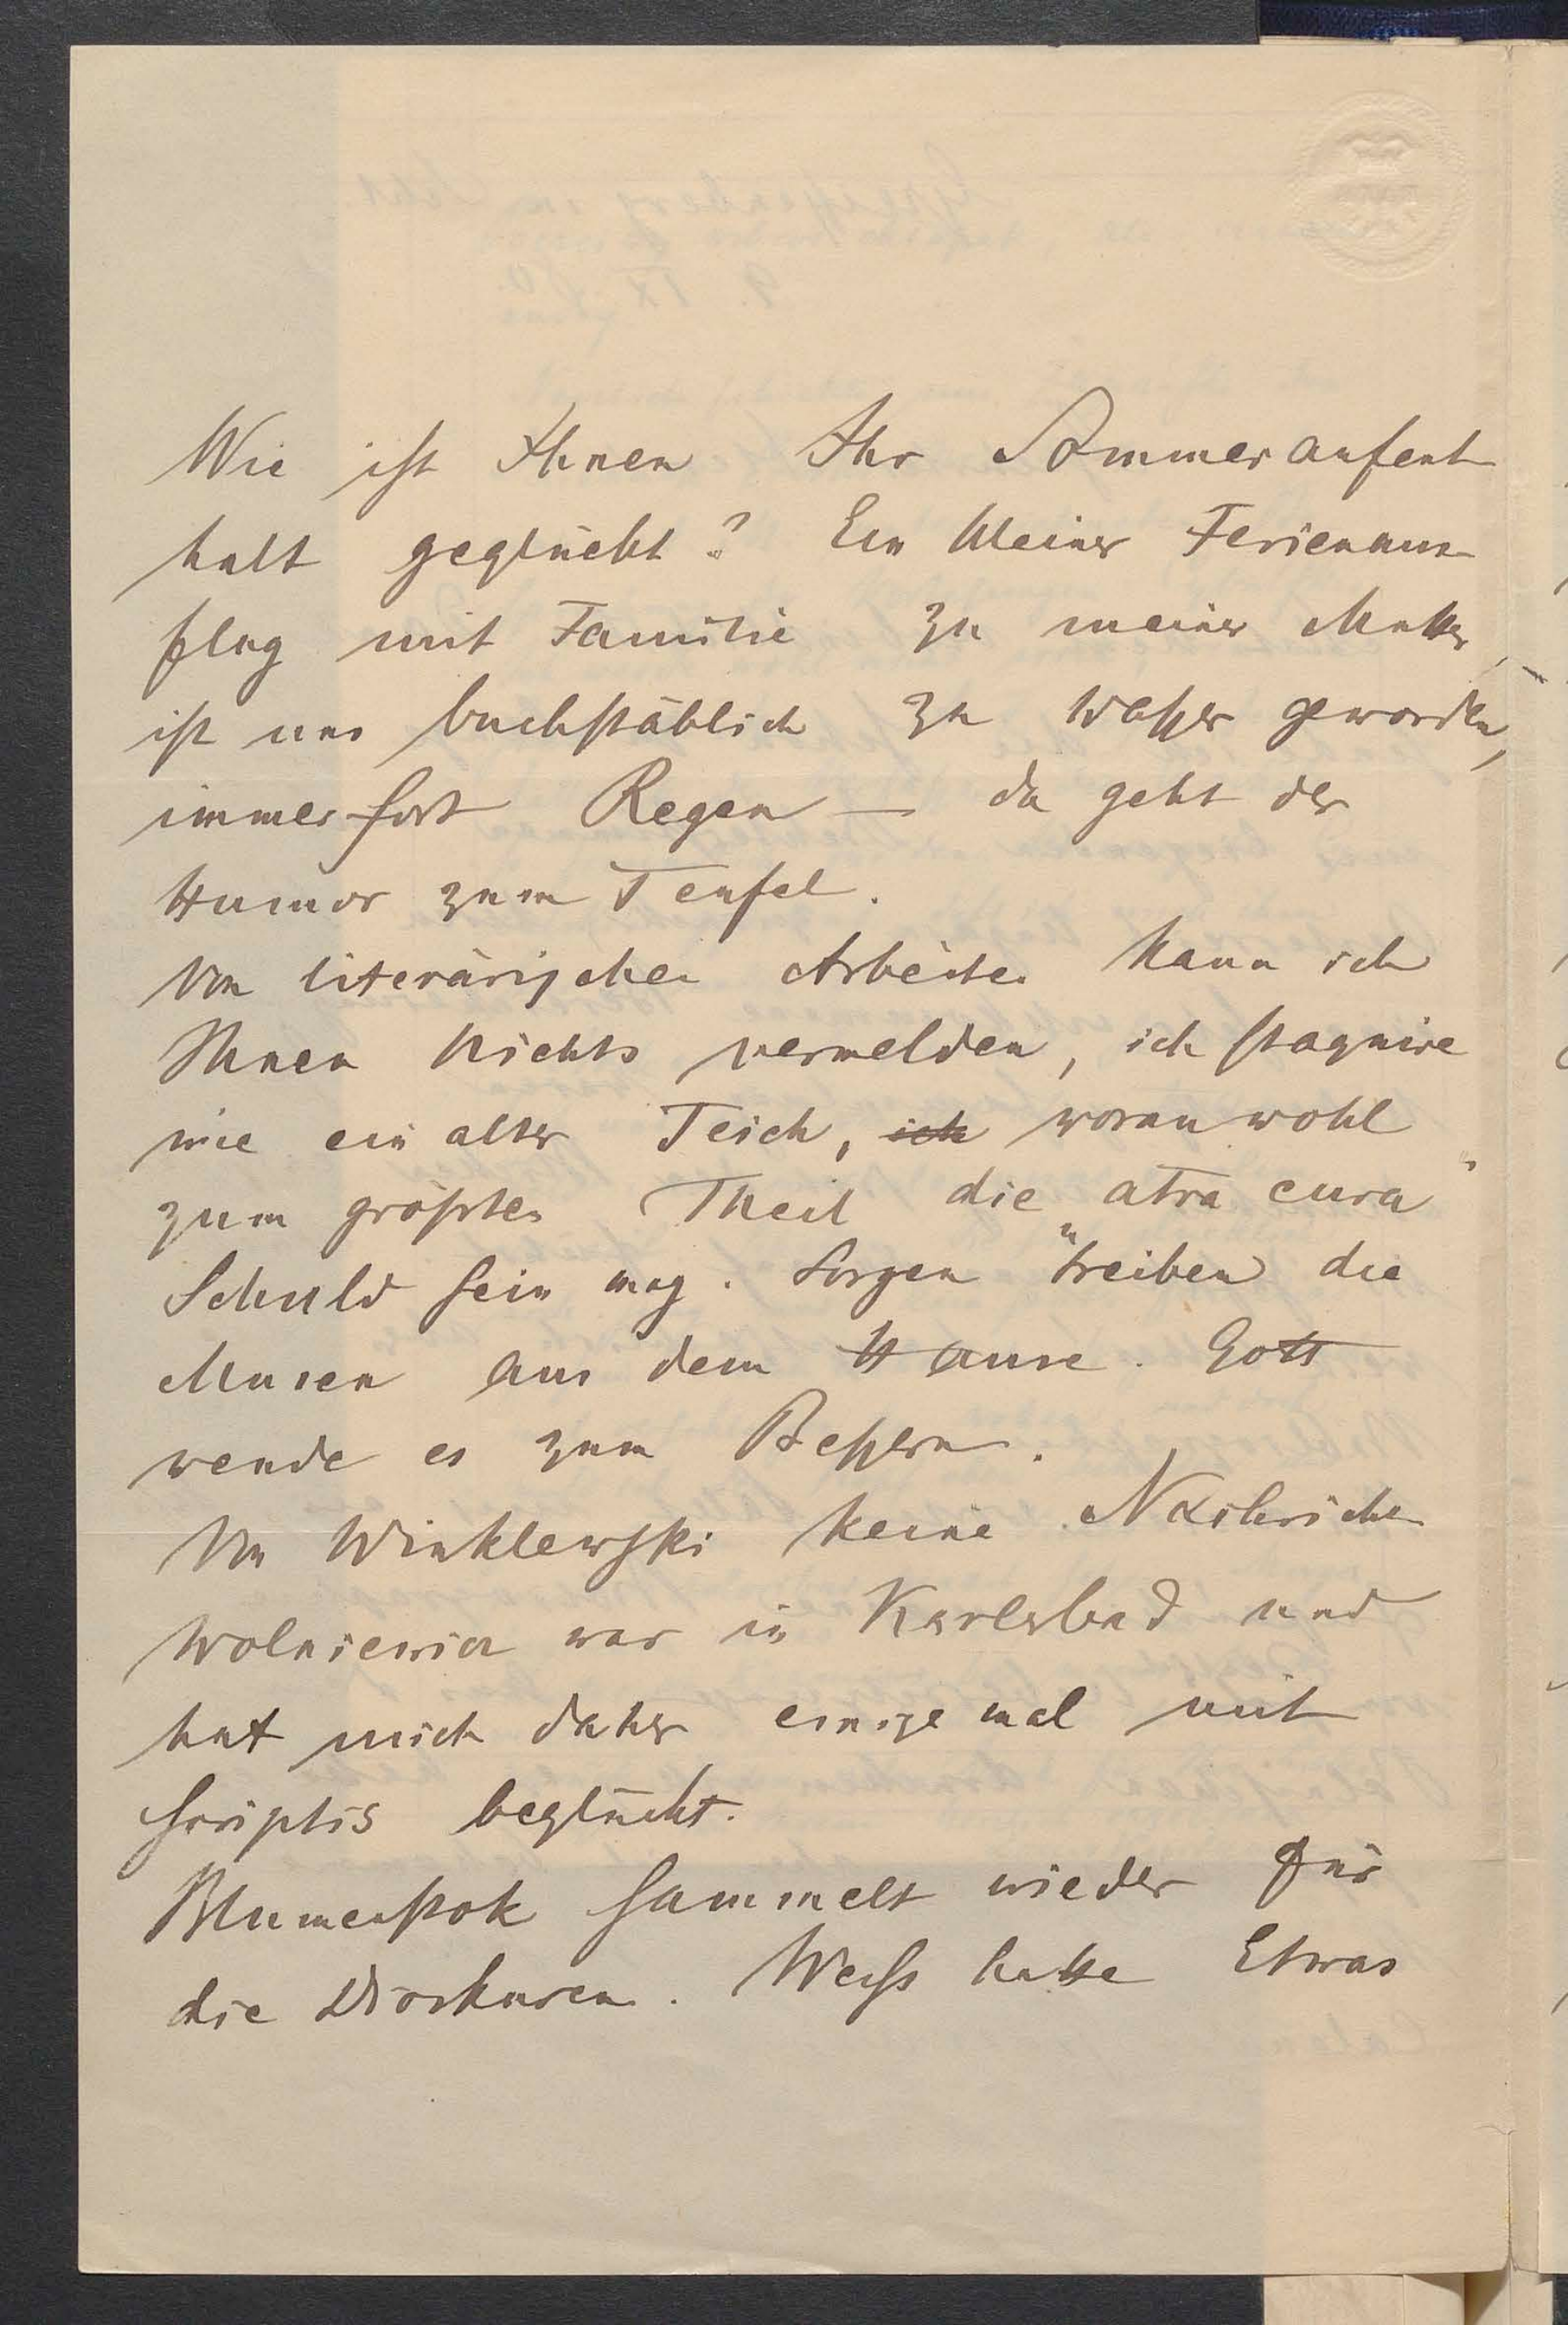 Wie ist Ihnen Ihr Sommeraufent
halt geglückt? Ein kleiner Ferienaus
flug mit Familie zu meiner Mutter,
ist uns buchstäblich zu Wasser geworden,
immerfort Regen — da geht der
Humor zum Teufel.
Von literärischen Arbeiten kann ich
Ihnen Nichts vermelden, ich stagnire
wie ein alter Teich, ich woran wohl
zum größten Theil die „atra cura“
Schuld sein mag. Sorgen treiben die
Musen aus dem Hause. Gott
wende es zum Bessern.
Von Winklewski keine Nachrichten
Wolniewicz war in Karlsbad und
hat mich daher einigemal mit
Scriptis beglückt.
Blumenstok sammelt wieder für
die Dioskuren. Weiss hatte Etwas